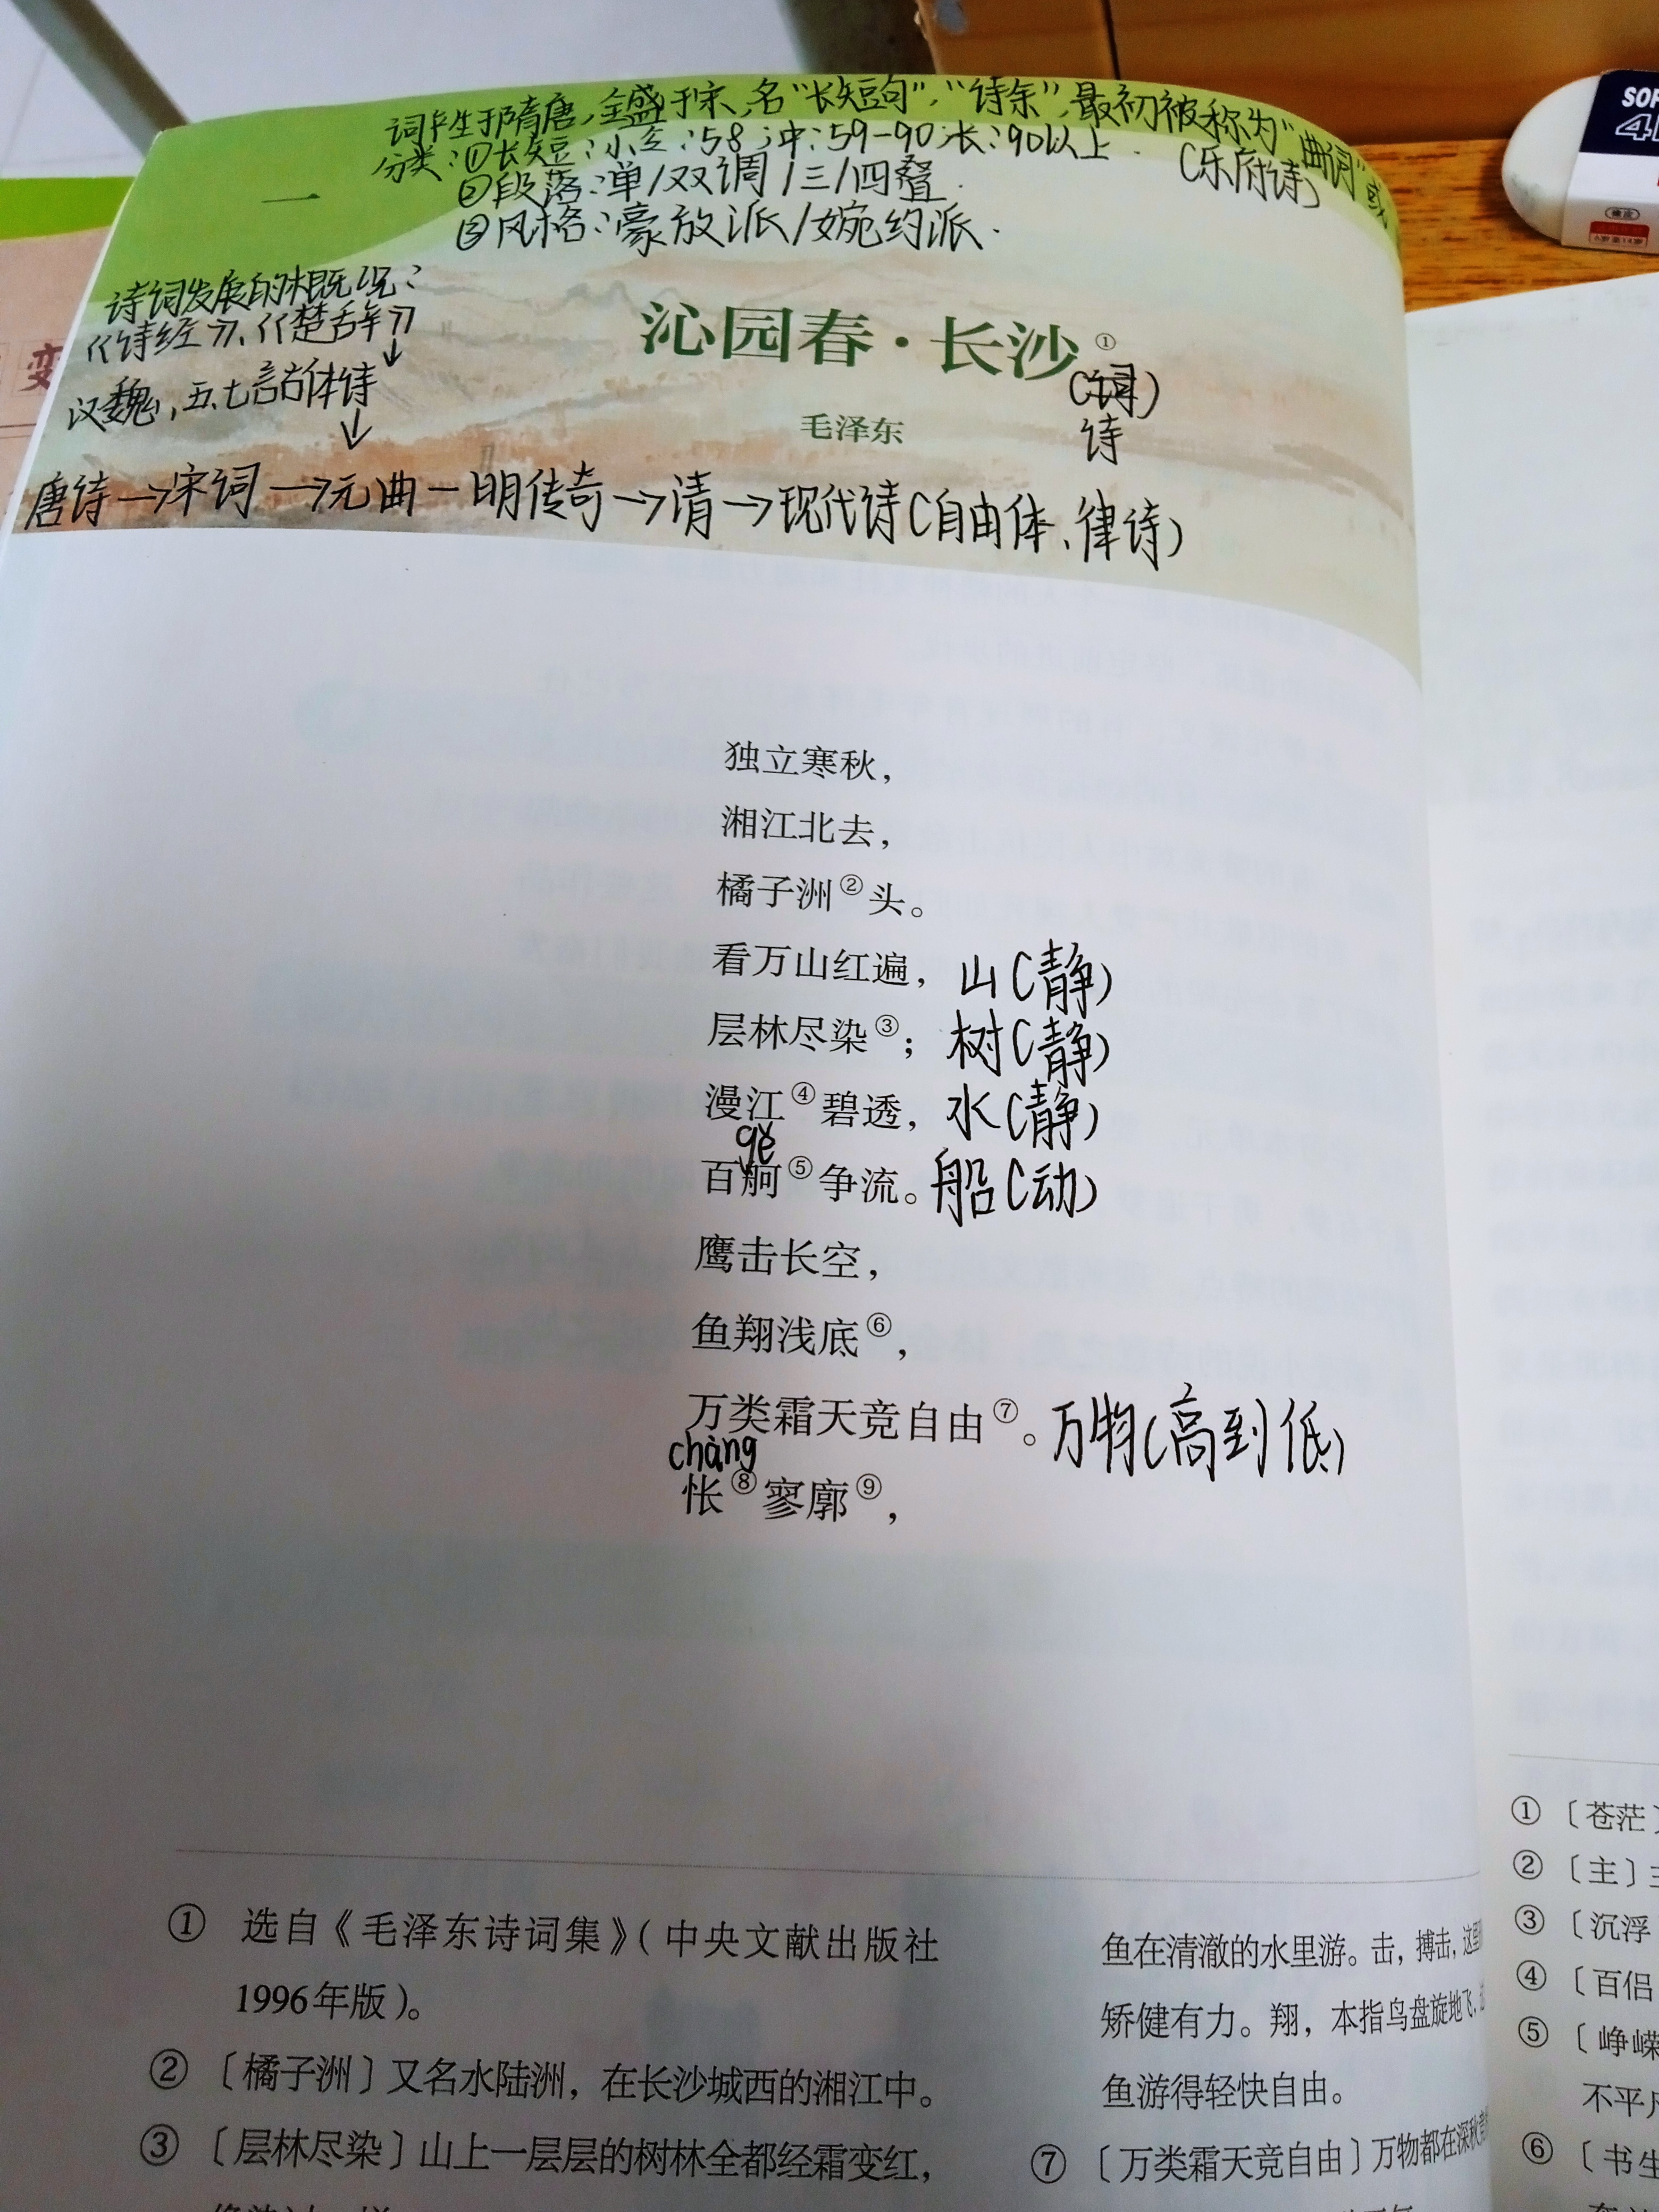 词产生于隋唐,全盛于宋,名“长短句”,“诗余”,最初被称为“曲词”或
分类:①长短:小令:58;中:59-90;长:90以上.
(乐府诗)
②段落:单/双调/三/四叠.
③风格:豪放派/婉约派.
一
诗词发展的概况:
《诗经》、《楚辞》
↓
汉魏,五、七言古体诗
↓
唐诗→宋词→元曲-明传奇→清→现代诗(自由体、律诗)
沁园春·长沙①
(词)
毛泽东
诗
独立寒秋,
湘江北去,
橘子洲②头。
看万山红遍, 山(静)
层林尽染③; 树(静)
漫江④碧透, 水(静)
gě
百舸⑤争流。船(动)
鹰击长空,
鱼翔浅底⑥,
万类霜天竞自由⑦。万物(高到低)
chàng
怅⑧寥廓⑨,
① 选自《毛泽东诗词集》(中央文献出版社
1996年版)。
② 〔橘子洲〕又名水陆洲,在长沙城西的湘江中。
③ 〔层林尽染〕山上一层层的树林全都经霜变红,
鱼在清澈的水里游。击,搏击,这里
矫健有力。翔,本指鸟盘旋地飞,
鱼游得轻快自由。
⑦ 〔万类霜天竞自由〕万物都在深秋
① 〔苍茫〕
② 〔主〕
③ 〔沉浮
④ 〔百侣
⑤ 〔峥嵘
不平凡
⑥ 〔书生
SOF
4
橡皮